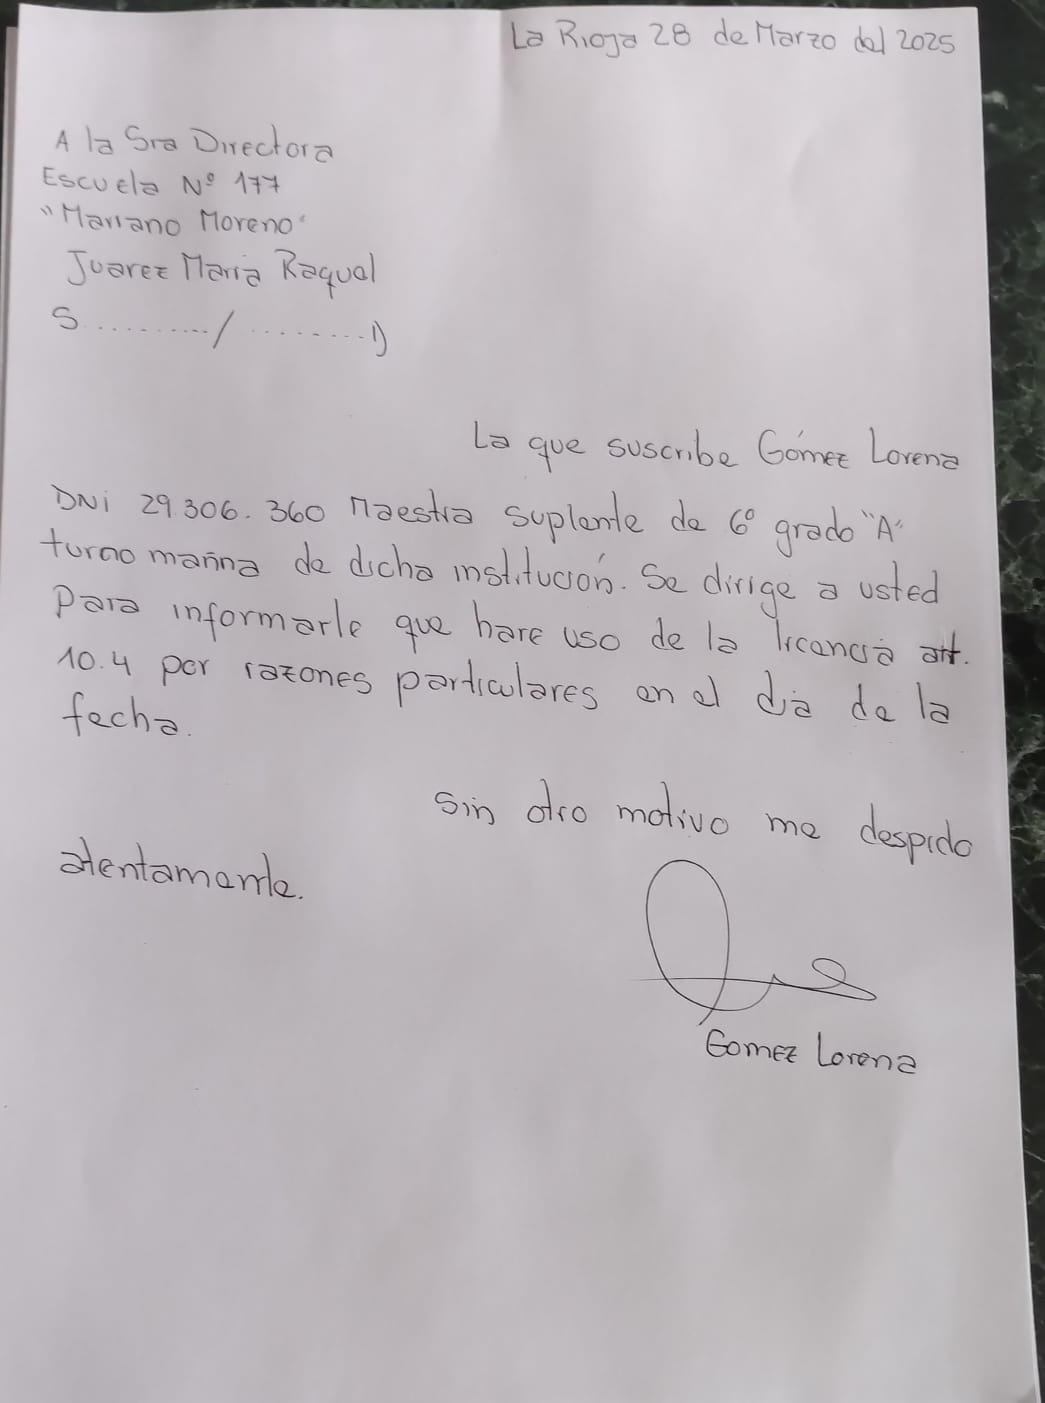 La Rioja 28 de Marzo del 2025
A la Sra Directora
Escuela Nº 177
"Mariano Moreno"
Juarez Maria Raquel
S........../.........D
La que suscribe Gómez Lorena
DNi 29.306.360 Maestra suplente de 6º grado "A"
turno mañna de dicha institución. Se dirige a usted
Para informarle que hare uso de la licencia art.
10.4 por razones particulares en el día de la
fecha.
Sin otro motivo me despido
atentamente.
Gomez Lorena